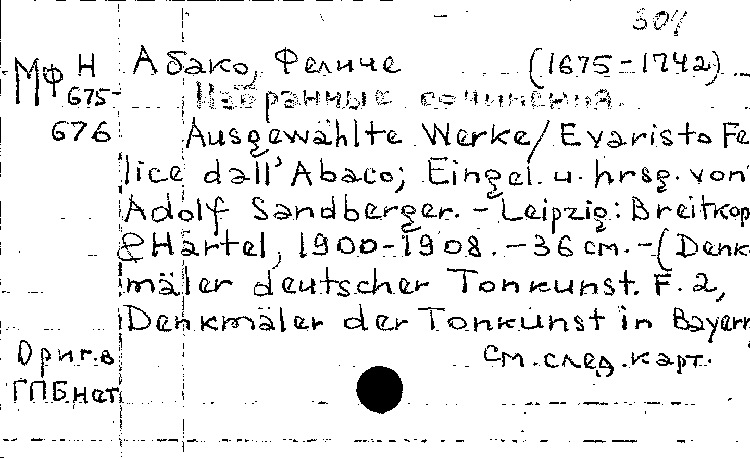 304
МФ Н Абако, Феличе (1675-1742)
675- Избранные сочинения.
676 Ausgewählte Werke/Evaristo Fe
lice dall'Abaco; Eingel. u. hrsg. von
Adolf Sandberger. - Leipzig: Breitkop
& Härtel, 1900-1908. - 36 см. - (Denk
mäler deutscher Tonkunst. F. 2,
Denkmäler der Tonkunst in Bayern
Ориг. в см. след. карт.
ГПБ нот